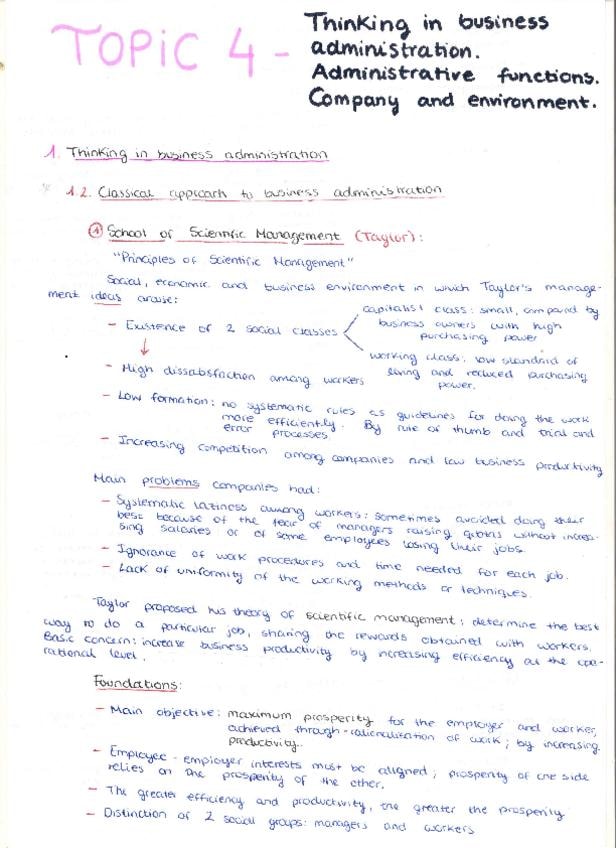 TOPIC 4 -
Thinking in business
administration.
Administrative functions.
Company and environment.
1. Thinking in business administration
1.2. Classical approach to business administration
1 School of Scientific Management (Taylor):
"Principles of Scientific Management"
Social, economic and business environment in which Taylor's manage-
ment ideas arouse:
- Existence of 2 social classes
capitalist class: small, compared by
business owners with high
purchasing power
working class: low standard of
living and reduced purchasing
power.
- High dissatisfaction among workers
- Low formation: no systematic rules as guidelines for doing the work
more efficiently. By rule of thumb and trial and
error processes
- Increasing competition among companies and low business productivity
Main problems companies had:
- Systematic laziness among workers: sometimes avoided doing their
best because of the fear of managers raising quotas without increa-
sing salaries or of some employees losing their jobs.
- Ignorance of work procedures and time needed for each job.
- Lack of uniformity of the working methods or techniques.
Taylor proposed his theory of scientific management: determine the best
way to do a particular job, sharing the rewards obtained with workers.
Basic concern: increase business productivity by increasing efficiency at the ope-
rational level.
Foundations:
- Main objective: maximum prosperity for the employer and worker,
achieved through rationalisation of work; by increasing
productivity.
- Employee - employer interests must be aligned; prosperity of one side
relies on the prosperity of the other.
- The greater efficiency and productivity, the greater the prosperity
- Distinction of 2 social groups: managers and workers